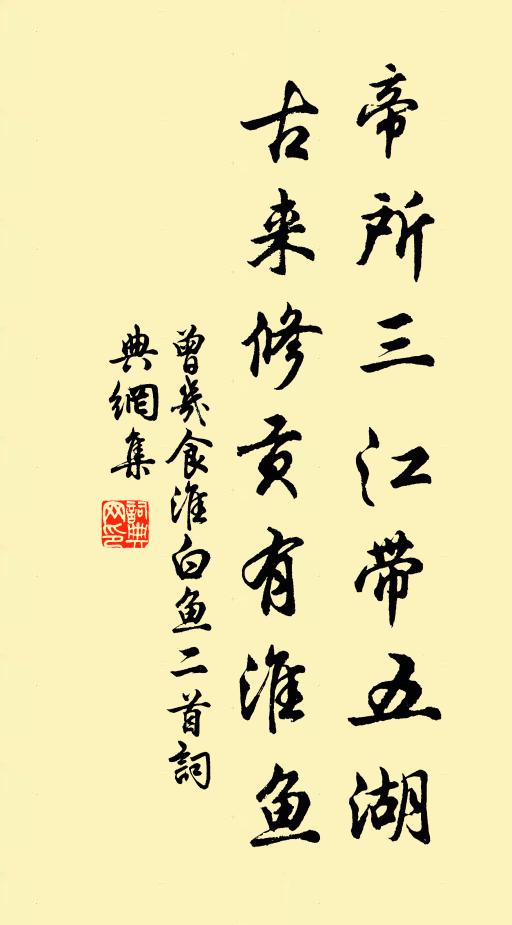 帝所三江带五湖
古来修贡有淮鱼
曾幾食淮白鱼二首詞
典網集
詞典网印